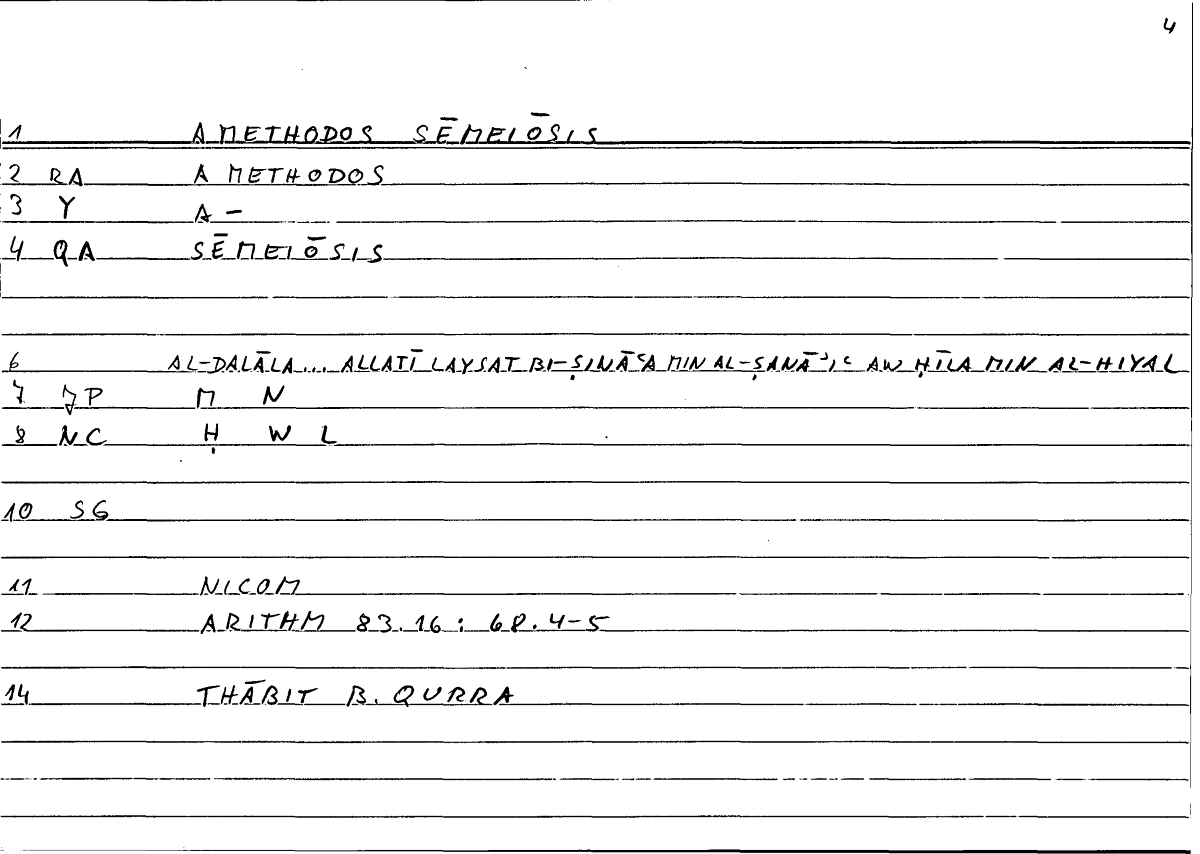 4
1 AMETHODOS SĒMEIŌSIS
2 RA A METHODOS
3 Y A –
4 QA SĒMEIŌSIS
6 AL-DALĀLA... ALLATĪ LAYSAT BI-ṢINĀʿA MIN AL-ṢANĀʾIʿ AW ḤĪLA MIN AL-HIYAL
7 JP M N
8 NC Ḥ W L
10 SG
11 NICOM
12 ARITHM 83.16 : 68.4-5
14 THĀBIT B. QURRA